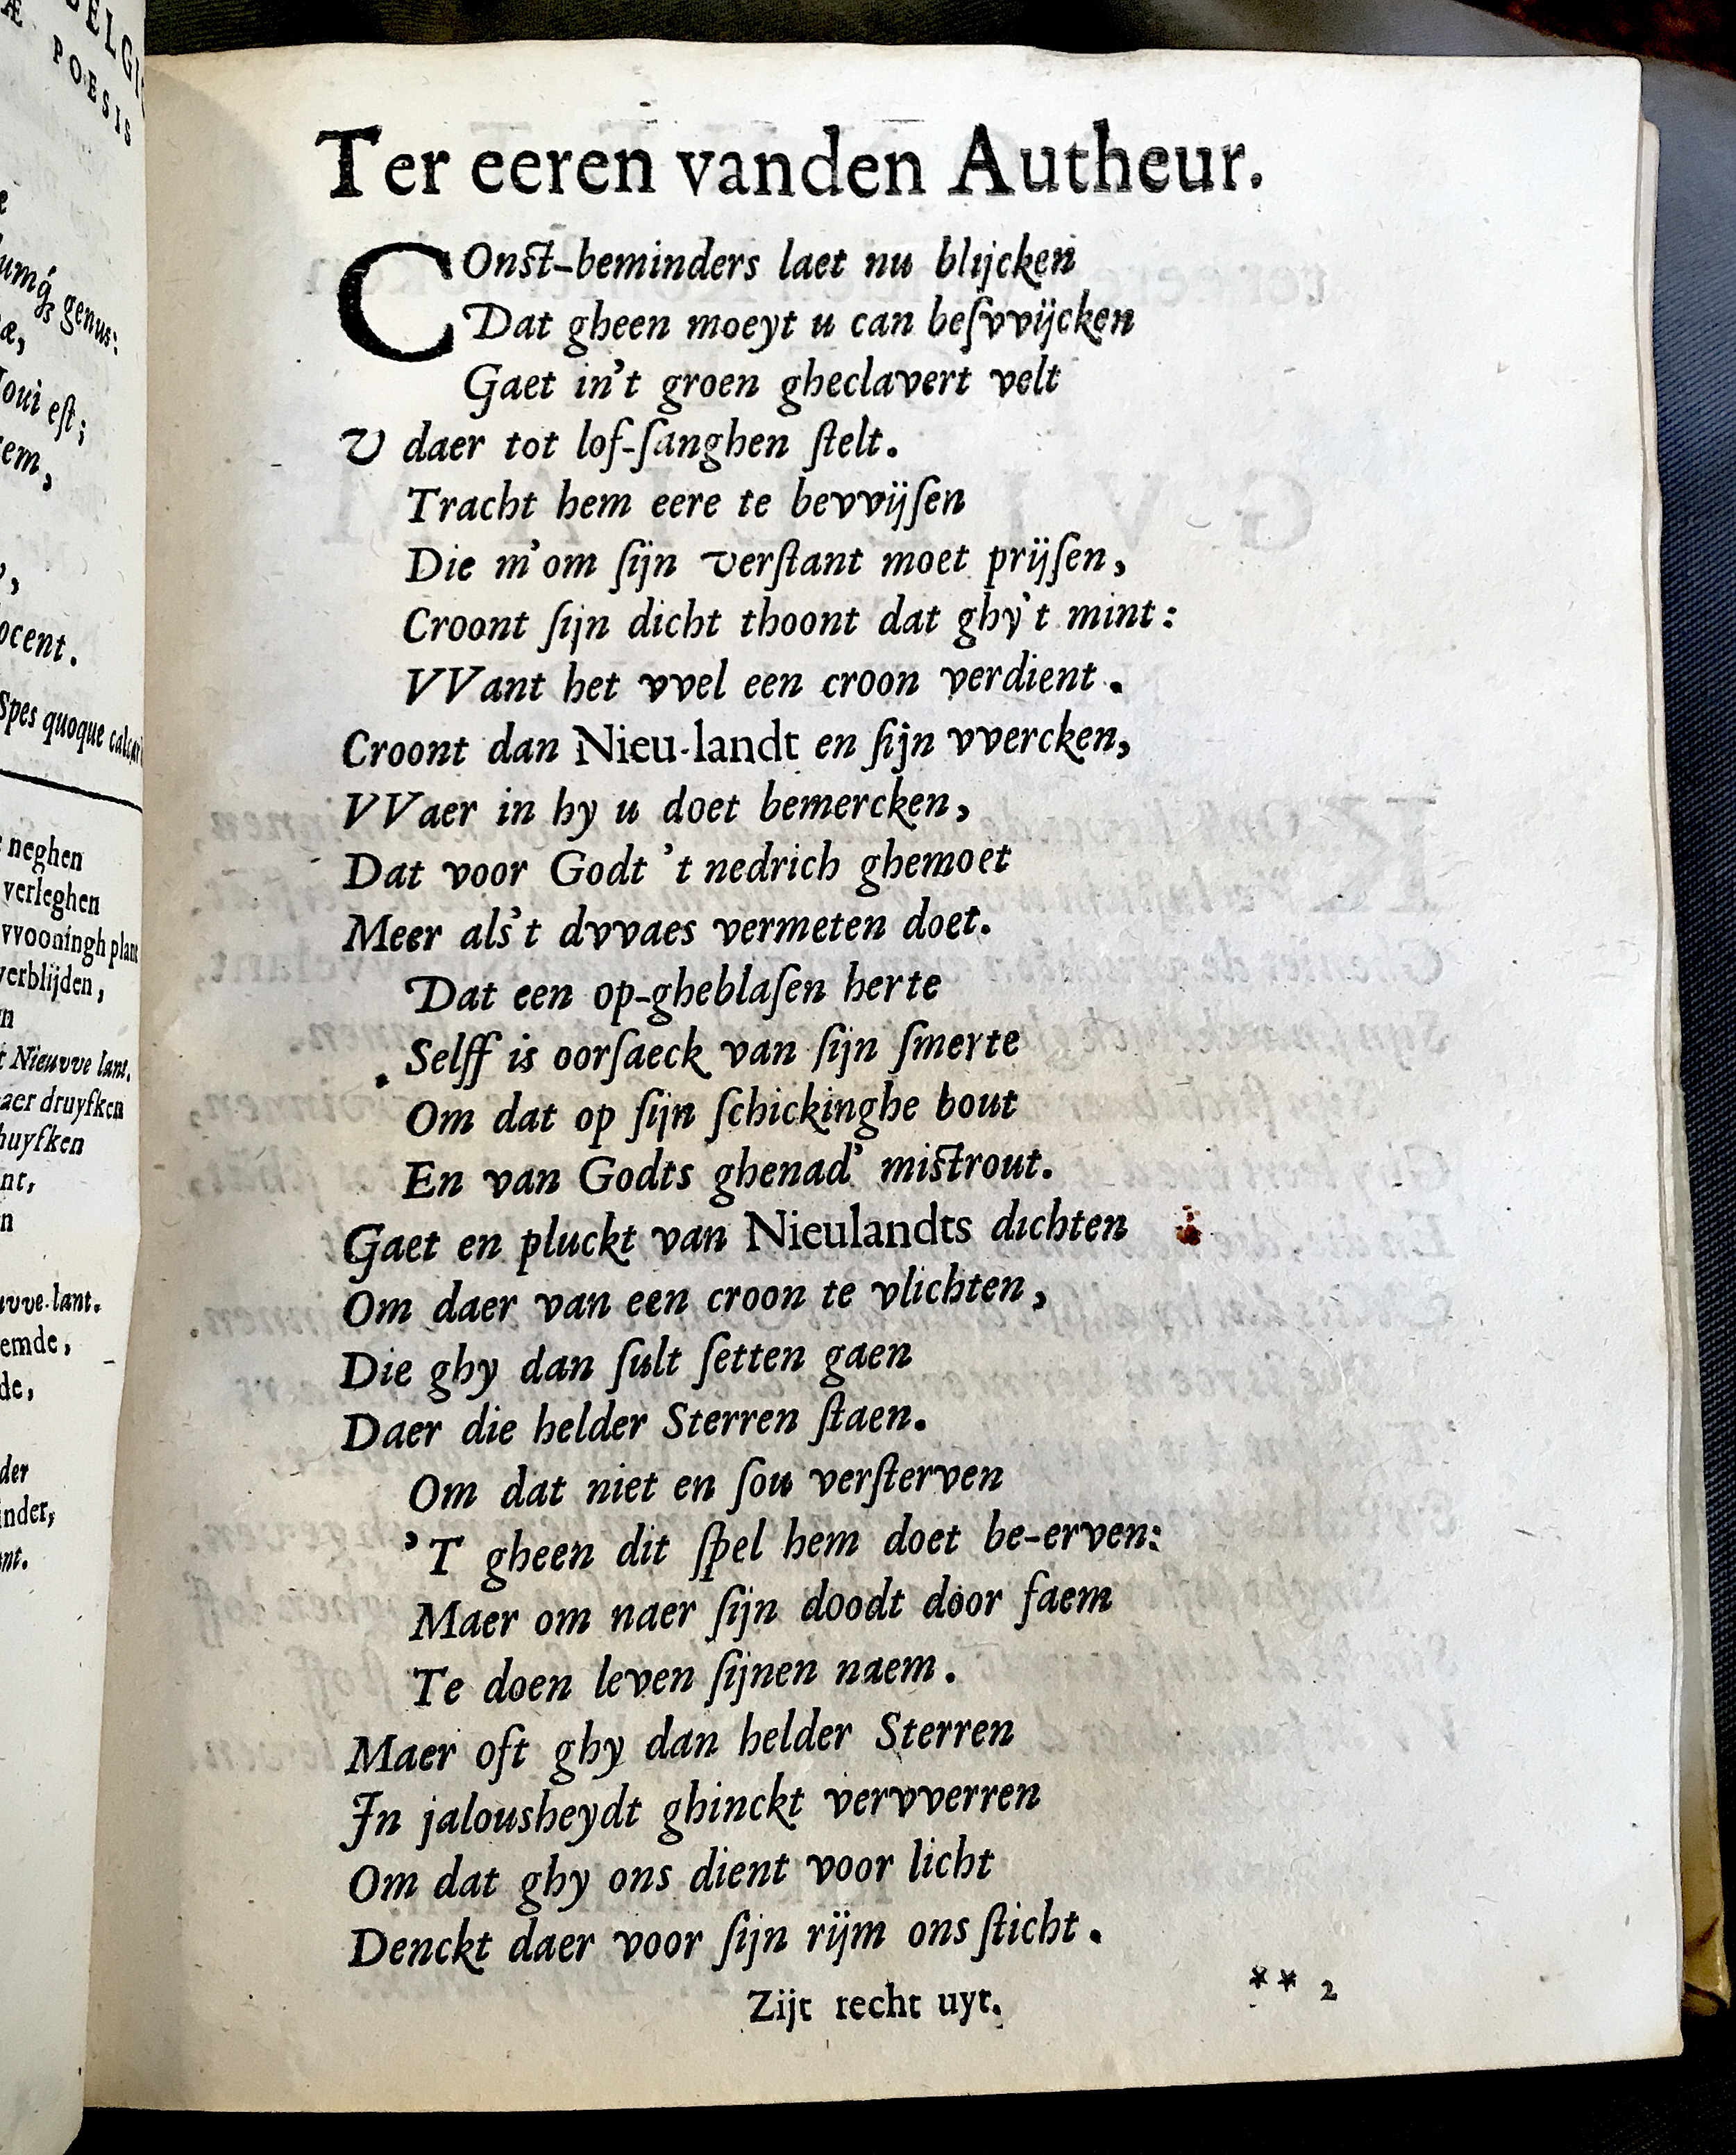 BELGI
Æ POESIS
umq́ꝫ genus:
æ,
Ioui eſt;
em,
ocent.
Spes quoque calcari
neghen
verleghen
vvooningh plant
verblijden,
t Nieuvve lant.
aer druyfken
huyſken
nt,
uvve-lant.
emde,
de,
der
inder,
nt.
Ter eeren vanden Autheur.
COnſt-beminders laet nu blijcken
Dat gheen moeyt u can beſvvijcken
Gaet in't groen gheclavert velt
V daer tot lof-ſanghen ſtelt.
Tracht hem eere te bevvijſen
Die m'om ſijn verſtant moet prijſen,
Croont ſijn dicht thoont dat ghy't mint:
VVant het vvel een croon verdient.
Croont dan Nieu-landt en ſijn vvercken,
VVaer in hy u doet bemercken,
Dat voor Godt 't nedrich ghemoet
Meer als't dvvaes vermeten doet.
Dat een op-gheblaſen herte
Selff is oorſaeck van ſijn ſmerte
Om dat op ſijn ſchickinghe bout
En van Godts ghenad' miſtrout.
Gaet en pluckt van Nieulandts dichten
Om daer van een croon te vlichten,
Die ghy dan ſult ſetten gaen
Daer die helder Sterren ſtaen.
Om dat niet en ſou verſterven
'T gheen dit ſpel hem doet be-erven:
Maer om naer ſijn doodt door faem
Te doen leven ſijnen naem.
Maer oft ghy dan helder Sterren
In jalousheydt ghinckt vervverren
Om dat ghy ons dient voor licht
Denckt daer voor ſijn rijm ons ſticht.
Zijt recht uyt.
** 2